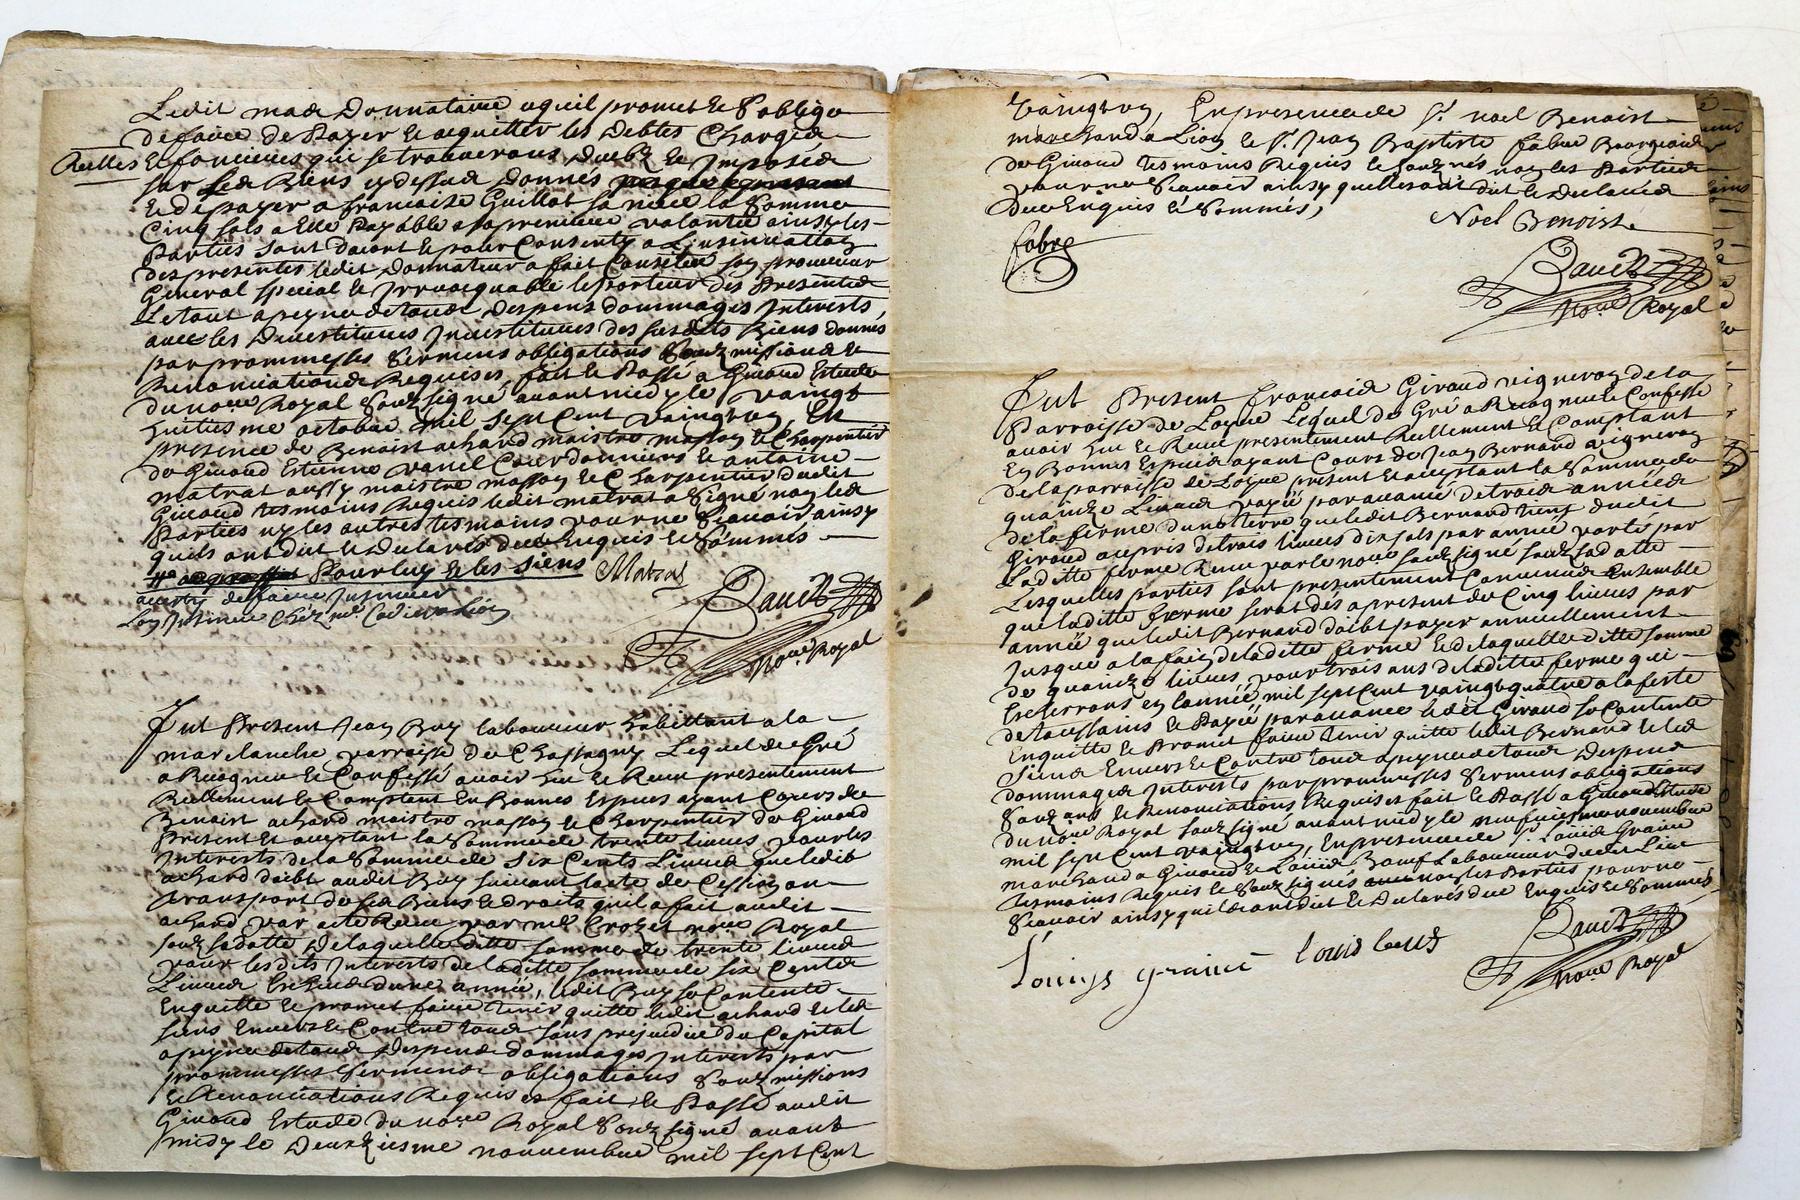 Ledit mad Donnataire aqueil promet & s'obligе
de faire de Payer & acquitter les debtes Charges
Reelles & foncieres qui se trouverons duebz & Imposéd
sur Led Biens cy dessud donnés
& de payer a francoise Guillot sa niece la Somme
Cinq sols a Elle Payable a sa premiere volonté ainsy les
Parties sont dacort & pour Consentir a L'insinuation
des presentes ledit donnateur a fait Constitué son procureur
General special & Irrevocquable le porteur des Presented
Le tout a peyne de toud despens dommages Interests,
avec les Devestitures Investitures des susdits Biens donnés
par prommesses Sermens obligations Soubzmissiond &
Renonciationd Requises, fait & Passé a Givord Estude
du nore Royal Soubsigné avant midy le vaingt
huitiesme octobre mil sept Cent vaingtun, En
presence de Benoist achard maistre masson & Charpentier
de Givord Estienne vanel Courdonniers & antoine
matrat aussy maistre masson & Charpentier dudit
Givord tesmoins Requis ledit matrat a Signé non led
Parties ny les autres tesmoins pour ne Scavoir ainsy
quils ont dit & declarés de ce Enquis & Sommés
Pour luy & les siens Matrat
averty de faire Insinuer
Baudt
nore Royal
Fut Present Jean Buy laboureur habittant a la
marclanche parroisse de Chassagny Lequel de Gré
a Recognu & Confessé avoir heu & Receu presentement
Reellement & Comptent En Bonnes Especes ayant Cours de
Benoist achard maistre masson & Charpentier de Givord
Present Et aceptant la Somme de trente livres pour les
Interests de la Somme de Six Cents Livres que ledit
achard doibt audit Buy suivant lacte de Cession ou
transport de sed Biens & droits quil a fait audit
achard par acte Receu par me Crozet nore Royal
soubz sa datte de laquelle ditte somme de trente livres
pour lesdits Interests de laditte somme de six Cents
Livres Escheus dune année, ledit Buy se Contente
Enquitte & promet faire tenir quitte ledit achard & led
siens Envers & Contre toud sans prejudice du Capital
a peyne de toud despend dommages Interests par
prommesses Sermend obligations Soubzmissions
& Renonciations Requises fait & Passé audit
Givord Estude du nore Royal Soubsigné avant
midy le Deuxiesme nouvembre mil sept Cent
vaingtun, En presence de Sr. noel Benoist
marchand a Lion & Sr. Jean Baptiste fabre Bourgeoid
de Givord tesmoins Requis & soubsignés non les Parties
pour ne Scavoir ainsy quelles ont dit & declaréd
de ce Enquis & Sommés,
Noel Benoist
fabre
Baudt
nore Royal
Fut Present francoid Giraud vigneron de la
Parroisse de Loyre Lequel de Gré a Recognu & Confessé
avoir heu & Receu presentement Reellement & Comptant
En Bonnes Especes ayant Cours de Jean Bernard vigneron
de la parroisse de Loyre present & aceptant la Somme de
quainze Livres payé par avance de trois années
de la ferme dune terre que ledit Bernard tient dudit
Giraud au prix de trois livres dix sols par année porté par
Laditte ferme Receu par le nore soubsigné soubz sa datte
Lesquelles parties sont presentement Convenues Ensemble
que laditte ferme sera dés a present de Cinq livres par
année que ledit Bernard doibt payer annuellement
Jusque a la fain de laditte ferme & de laquelle ditte somme
de quainze livres, pour trois ans de laditte ferme qui
Escherrons en lannée mil sept Cent vaingtquatre a la feste
de toussains & Payé par avance ledit Giraud se Contente
Enquitte & Promet faire tenir quitte ledit Bernard & led
Siens Envers & Contre toud a peyne de toud despend
dommages Interests par prommesses Sermens obligations
& Renonciations Requises fait & Passé a Givord Estude
du nore Royal soubsigné avant midy le neufviesme novembre
mil sept Cent vaingtun, En presence de Sr. Louis Graine
marchand a Givord & Louis Bœuf Laboureur dudit Lieu
tesmoins Requis & Soubsignés non les Parties pour ne
Scavoir ainsy quils ont dit & declarés de ce Enquis & Sommés
Louys graine
louis beuf
Baudt
nore Royal